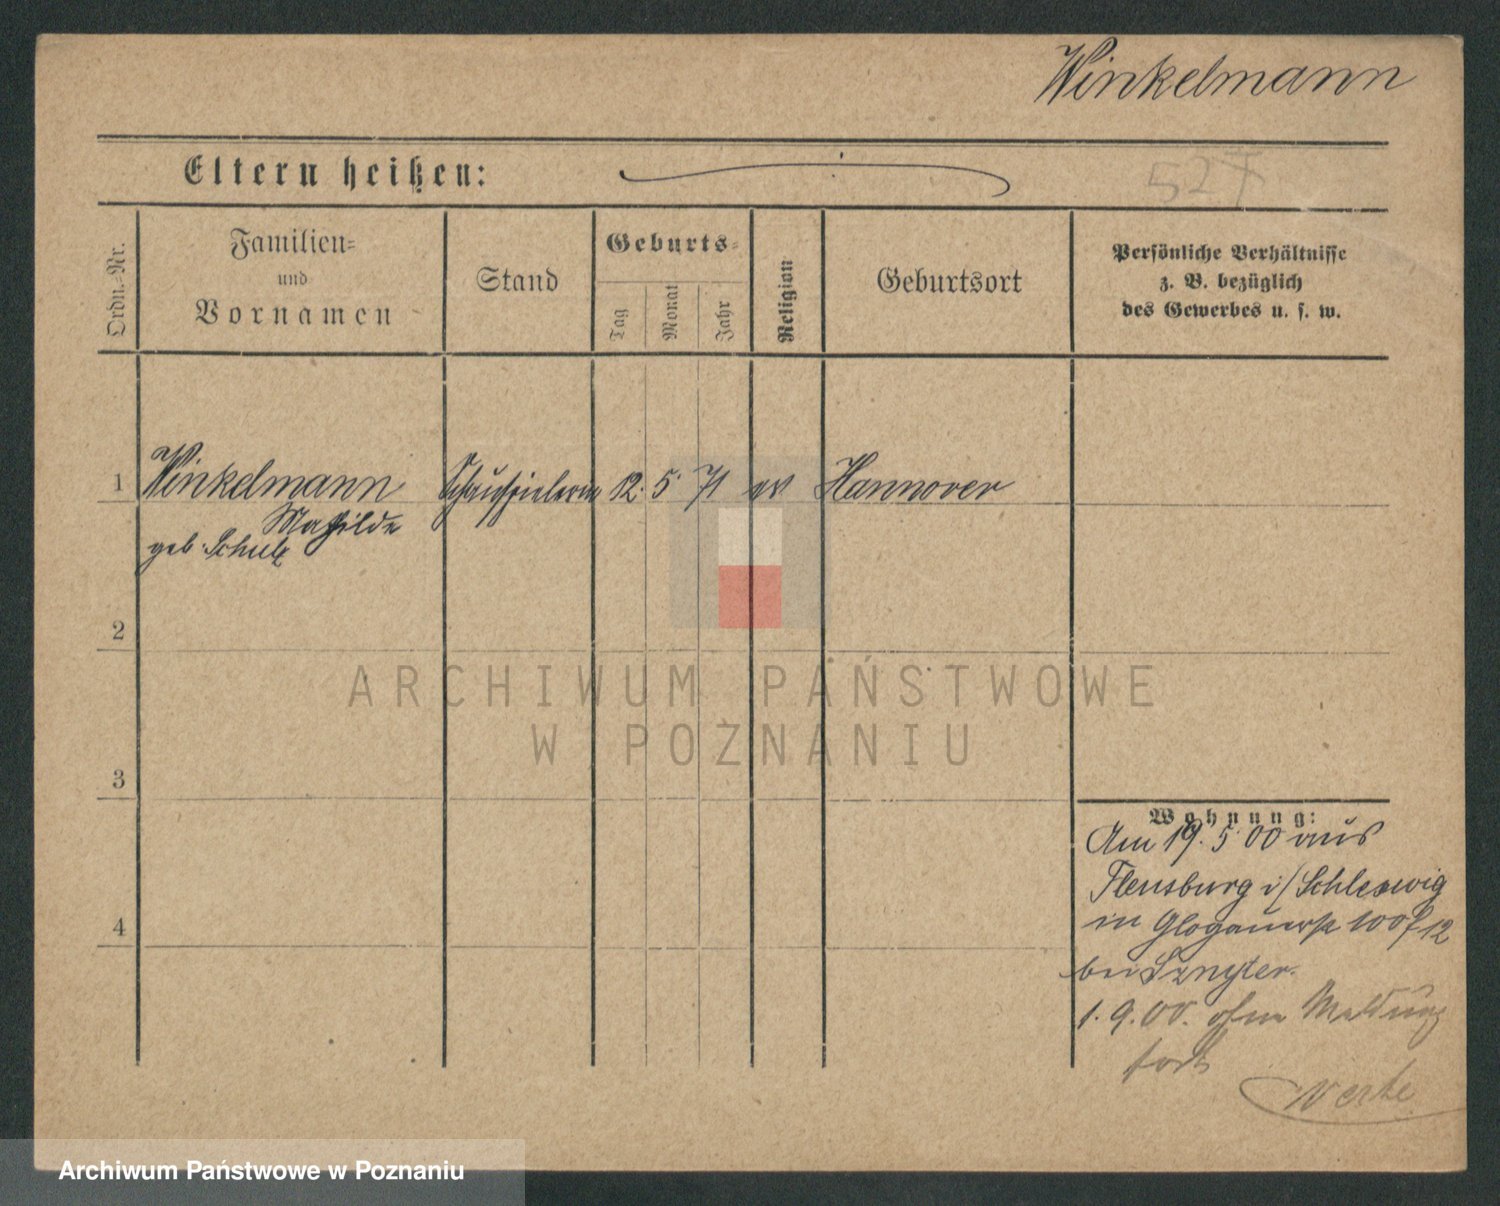 Winkelmann
Eltern heißen:
527
Ordn.-Nr.
Familien=
und
Vornamen
Stand
Geburts=
Tag
Monat
Jahr
Religion
Geburtsort
Persönliche Verhältnisse
z. B. bezüglich
des Gewerbes u. s. w.
1 Winkelmann Schauspielerin 12. 5. 71 ev Hannover
Mathilde
geb. Schulz
2
ARCHIWUM PAŃSTWOWE
W POZNANIU
3
Wohnung:
Am 19. 5 00 aus
Flensburg i/Schleswig
in Glogauerstr 100
4
bei
1. 9. 00. ohne Meldung
fort
verte
Archiwum Państwowe w Poznaniu